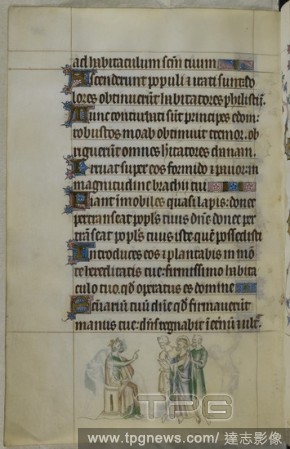 ad habitaculum scm tuum
Ascenderunt populi & irati sunt do
lores obtinuerūt habitatores philistiī.
Tunc conturbati sūt principes edom:
robustos moab obtinuit tremor. ob
riguerunt omnes hitatores chanaan.
Irruat super eos formido & pauor: in
magnitudine brachii tui
Fiant immobiles quasi lapis: donec
pertranseat popl's tuus dn̄e: donec per
trāseat popl's tuus iste quē possedisti
Introduces eos & plantabis in mō
te hereditatis tue: firmissimo habita
culo tuo qd operatus es domine
Sc̄uariū tuū dn̄e qd firmauerūt
manus tue: dn̄s regnabit
TPG
www.tpgnews.com/ 達志影像